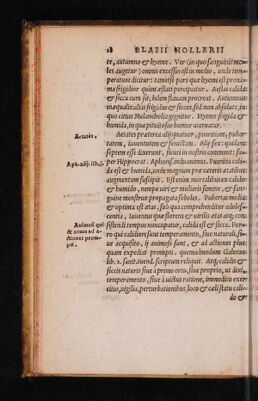 18 BLASII HOLLERII
te, autumno & hyeme. Ver (in quo sanguinis moles augetur) omni excessus est in medio, unde temperatum
dicitur: tamen si pars que hyemi est proxima
frigidior quàm æstati percipiatur. Aestas calida
& sicca cum sit, bilem flavam procreat. Autumnus
inæqualis, frigidus & siccus
citò cutus Melancholia gignitur. Hyems frigida &
humida, in qua pituitosus humor acervatur.
Aetates. Aetates præterea alij quatuor, pueritiam, pubertatem,
iuventutem & senectutem. Alij sex: quidam
septem esse dixerunt, sicuti in nostris
Aph. xiiij. lib. j. per Hippocrat. Aphorismos indicavimus. Pueritia calida
est & humida, unde magnam præ cæteris ætatibus
augmentum suscipit. Est enim moderatum calido
& humido, nempe viri & mulieris semine, &
sanguine menstruo propagata soboles. Pubertas media
& optima est ætas, sub qua comprehenditur adolescentia,
iuventus quæ florens & virilis ætas
Animosi qui & omnes ad actiones prompti. sistendi tempus nuncupatur, calida est & sicca. Porro
qui calidiori sunt temperamento, sive naturali, sive
acquisito, ij animosi sunt, & ad actiones plus
quàm expedit prompti, quemadmodum Galenus
lib. 2. sanit. tuend. scriptum reliquit. Atque calidis &
siccis naturis sive à primo ortu, sive proprio, ut dicitur,
temperamento, sive à victus ratione, immodico exercitio,
vigilijs, perturbationibus, loco & cæli statu calido
&